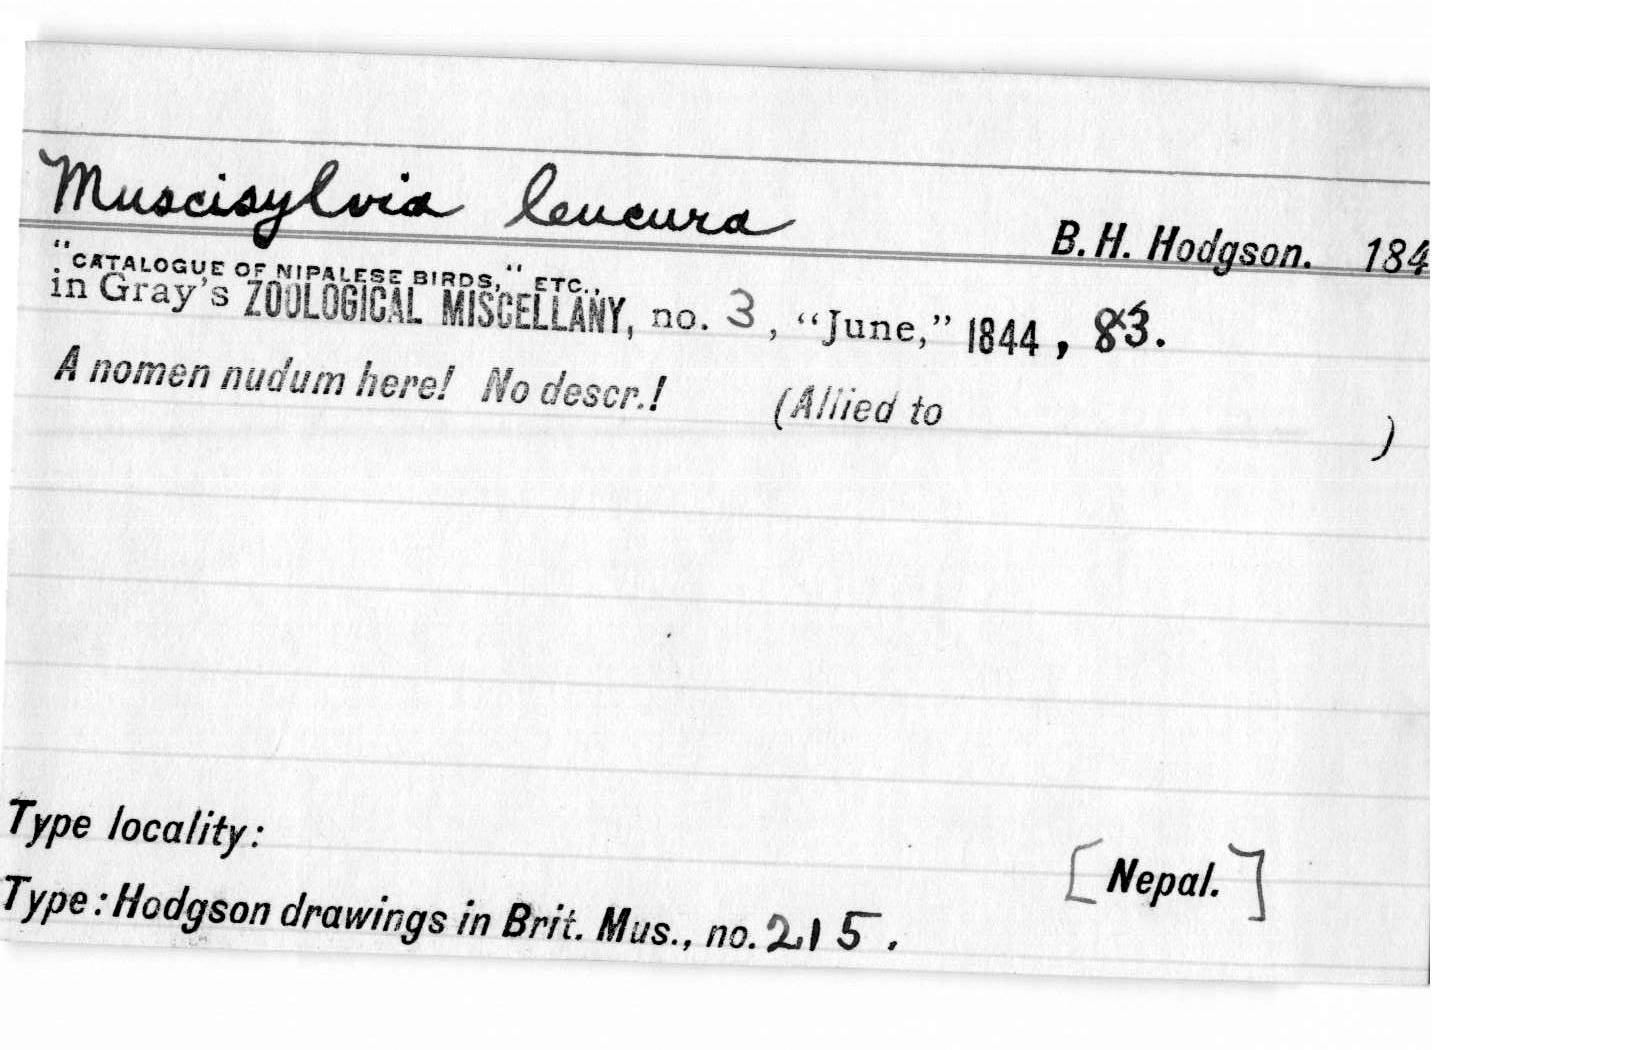 Muscisylvia leucura
B. H. Hodgson. 184
"CATALOGUE OF NIPALESE BIRDS," ETC.,
in Gray's ZOOLOGICAL MISCELLANY, no. 3, "June," 1844, 83.
A nomen nudum here! No descr.! (Allied to )
Type locality: [Nepal.]
Type: Hodgson drawings in Brit. Mus., no. 215.